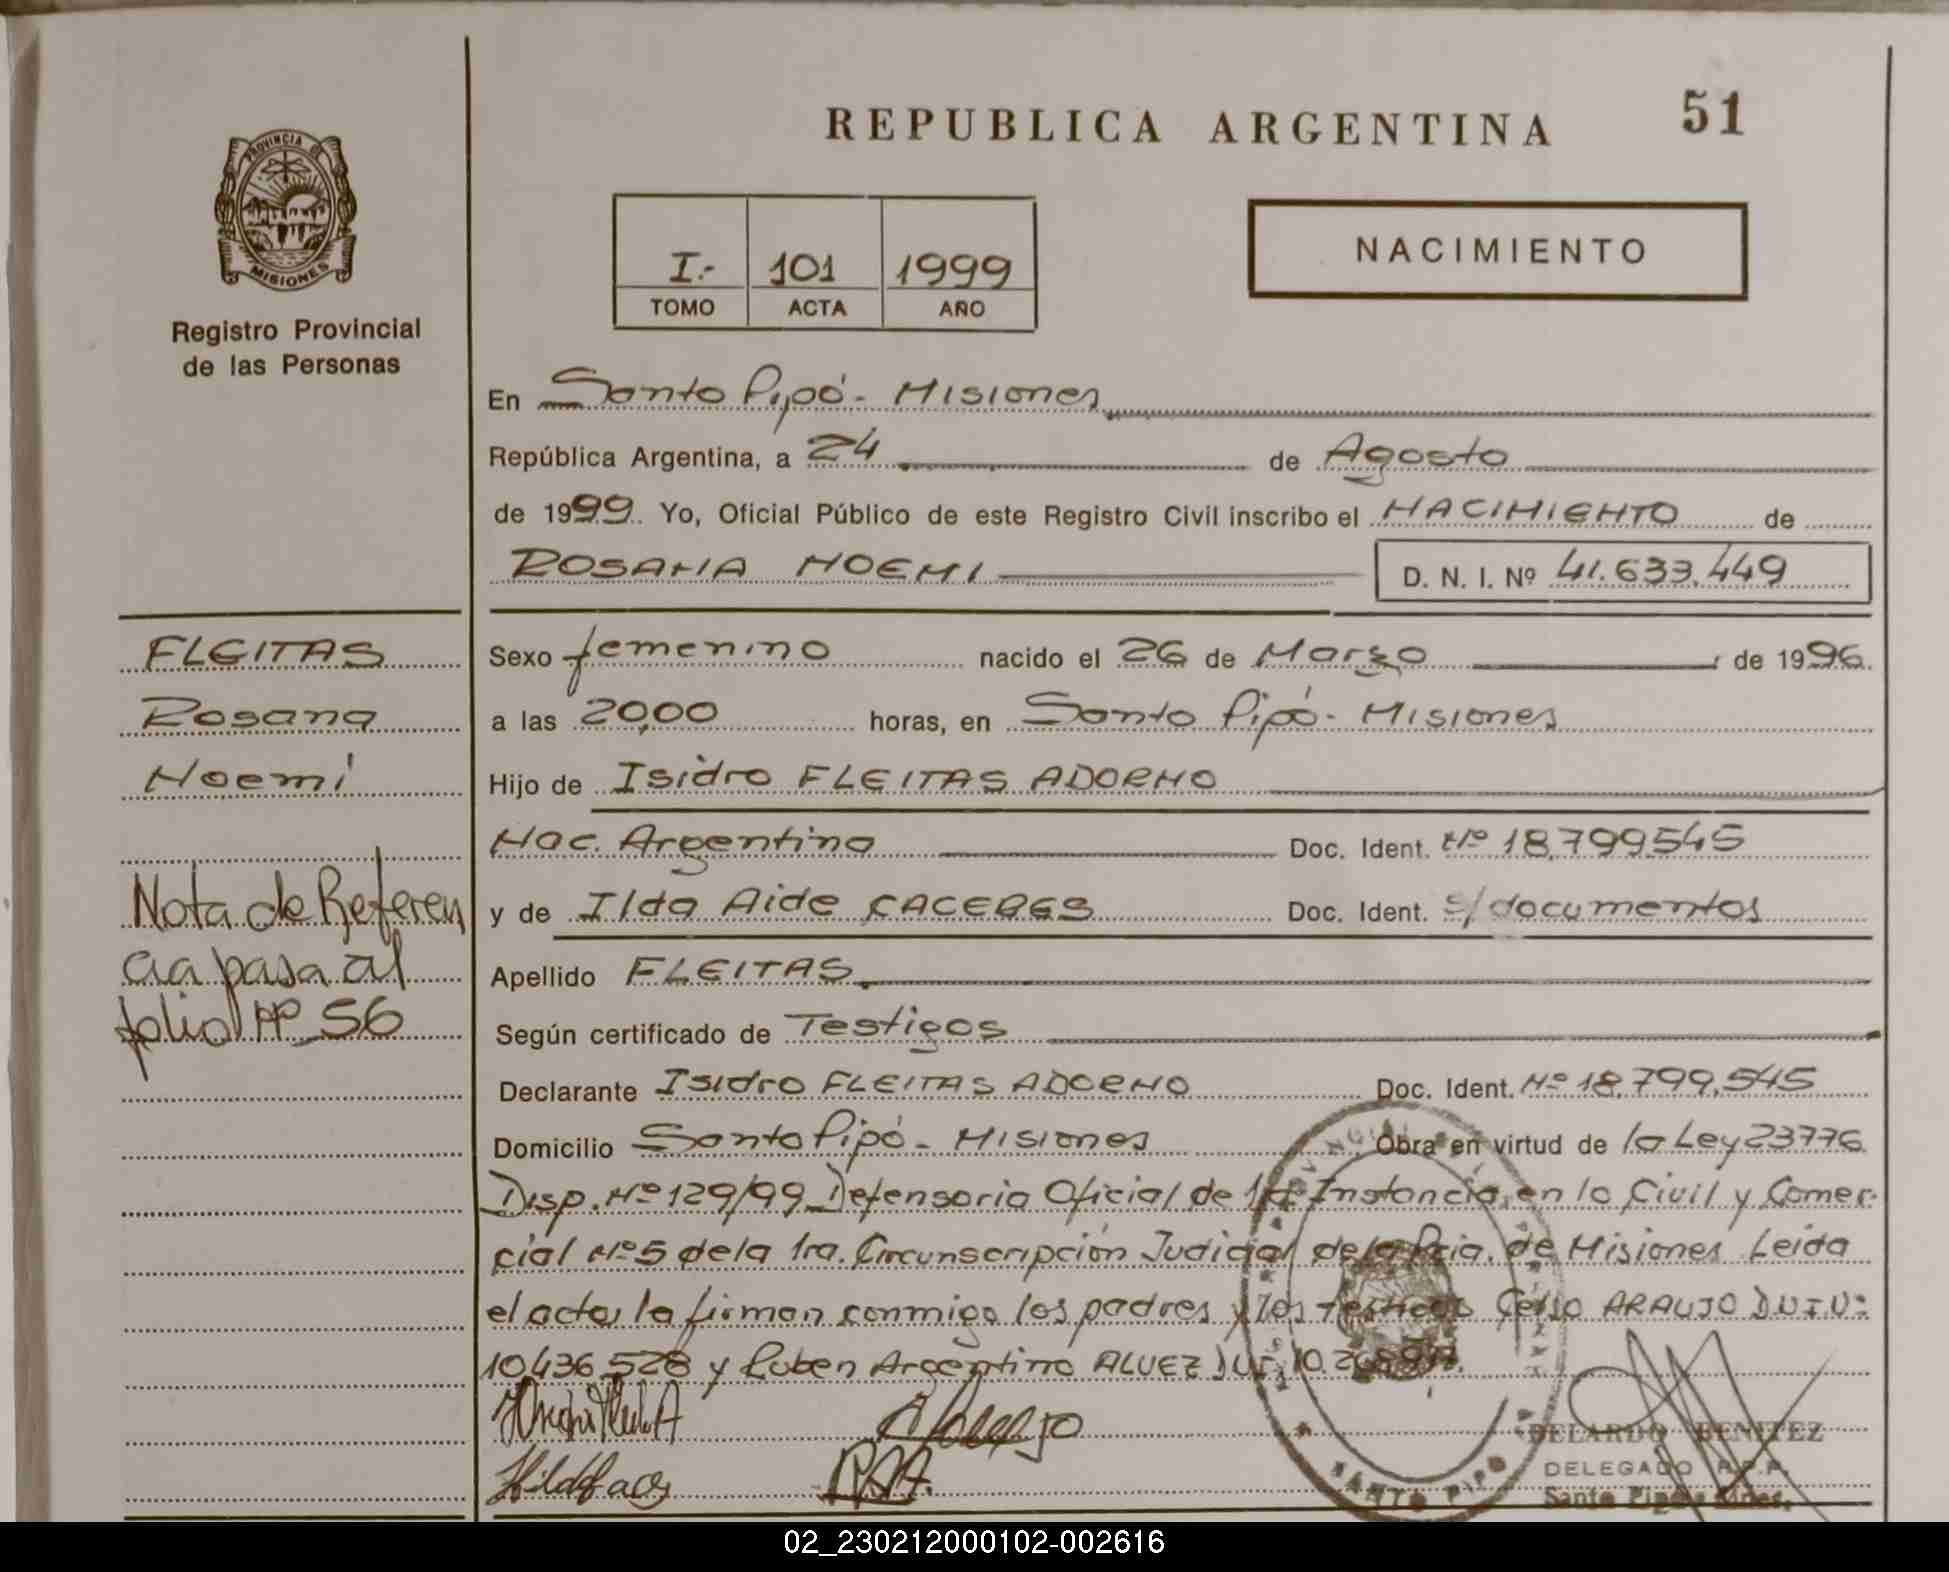 REPUBLICA ARGENTINA
51
PROVINCIA DE
MISIONES
Registro Provincial
de las Personas
I.- 101 1999
TOMO ACTA AÑO
NACIMIENTO
En Santo Pipó - Misiones
República Argentina, a 24 de Agosto
de 1999. Yo, Oficial Público de este Registro Civil inscribo el NACIMIENTO de
ROSANA NOEMI D. N. I. Nº 41.633.449
FLEITAS
Rosana
Noemí
Nota de Referen
cia pasa al
folio Nº 56
Sexo femenino nacido el 26 de Marzo de 1996.
a las 20,00 horas, en Santo Pipó - Misiones
Hijo de Isidro FLEITAS ADORNO
Nac. Argentino Doc. Ident. Nº 18.799.545
y de Ilda Aide CACERES Doc. Ident. s/documentos
Apellido FLEITAS
Según certificado de Testigos
Declarante Isidro FLEITAS ADORNO Doc. Ident. Nº 18.799.545
Domicilio Santo Pipó - Misiones Obra en virtud de la Ley 23776
Disp. Nº 129/99 Defensoria Oficial de 1ra Instancia en lo Civil y Comer-
cial Nº 5 de la 1ra. Circunscripción Judicial de la Pcia. de Misiones Leida
el acta, la firman conmigo los padres y los testigos Celso ARAUJO D.N.I.Nº
10.436.528 y Ruben Argentino ALVEZ
DELEGADO R.P.P.
Santo Pipó - Mnes.
BENITEZ
SANTO PIPO
02_230212000102-002616